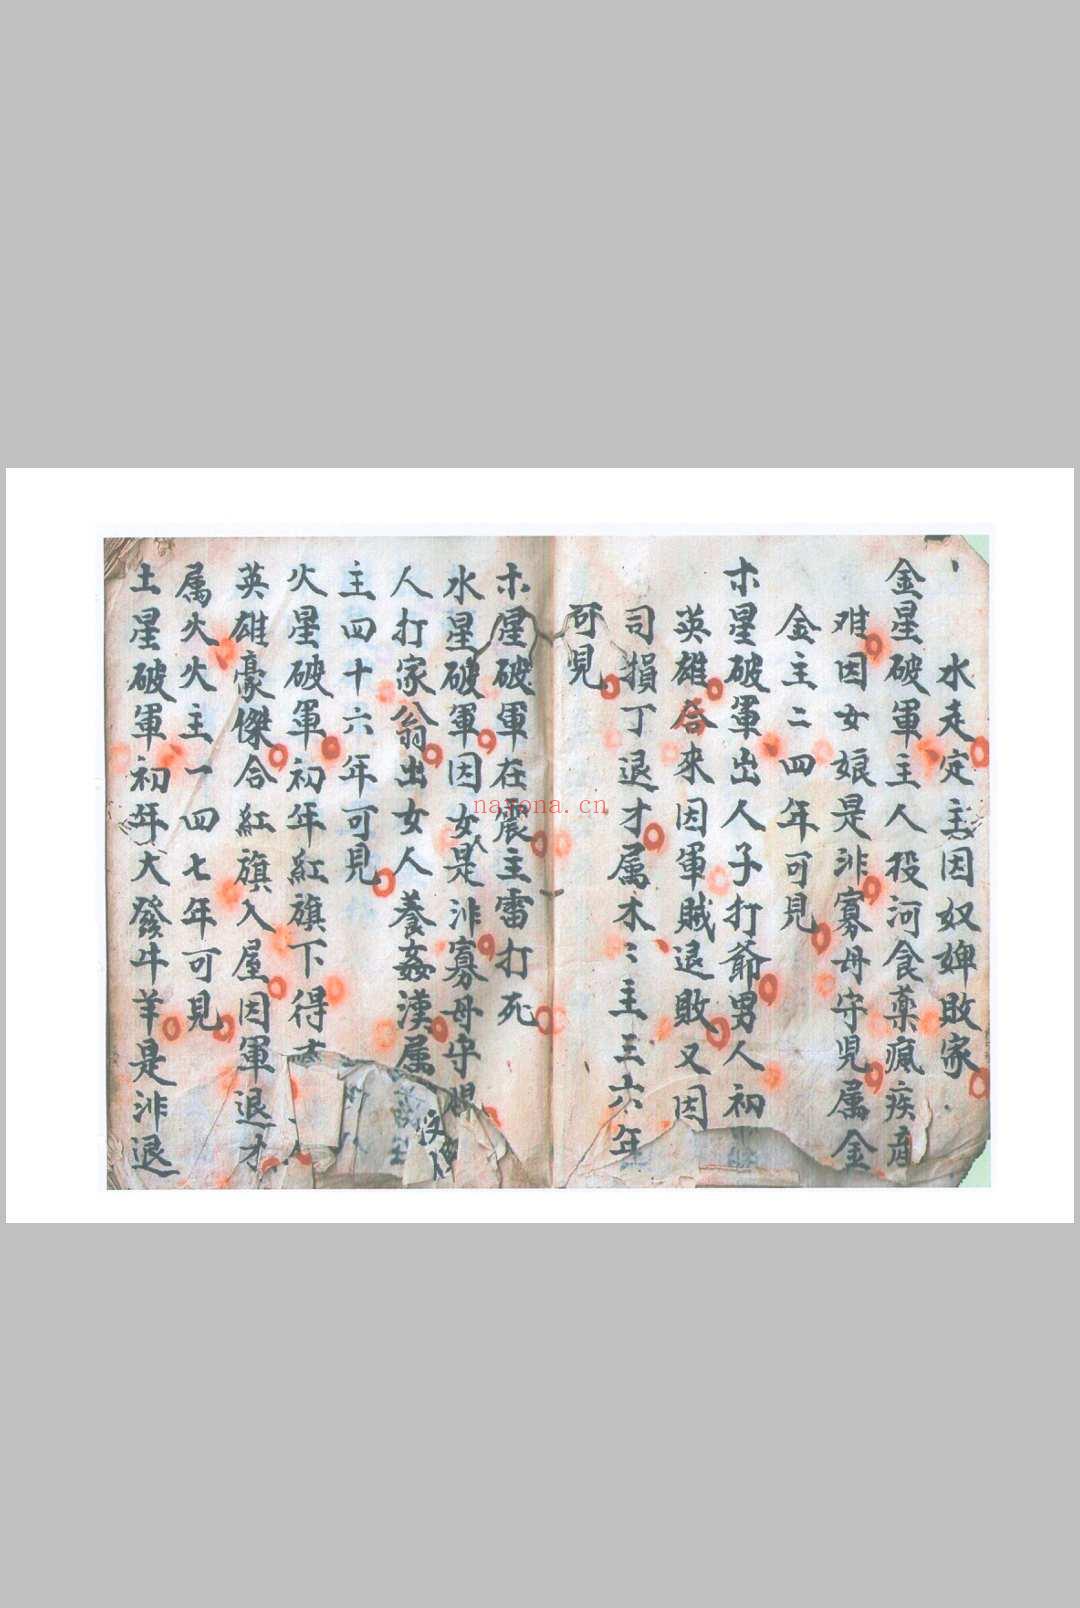 水走定主因奴婢敗家
金星破軍主人投河食藥瘋疾產
难因女娘是非寡母守児属金
金主二四年可見
木星破軍出人子打爺男人初
英雄合來因軍賊退敗又因
司損丁退才属木〻主三六年
可児
木星破軍在震主雷打死
水星破軍因女是非寡母守
人打家翁出女人養姦漢属
主四十六年可見
火星破軍初年紅旗下得
英雄豪傑合紅旗入屋因軍退才
属火火主一四七年可見
土星破軍初年大發牛羊是非退
nayona.cn